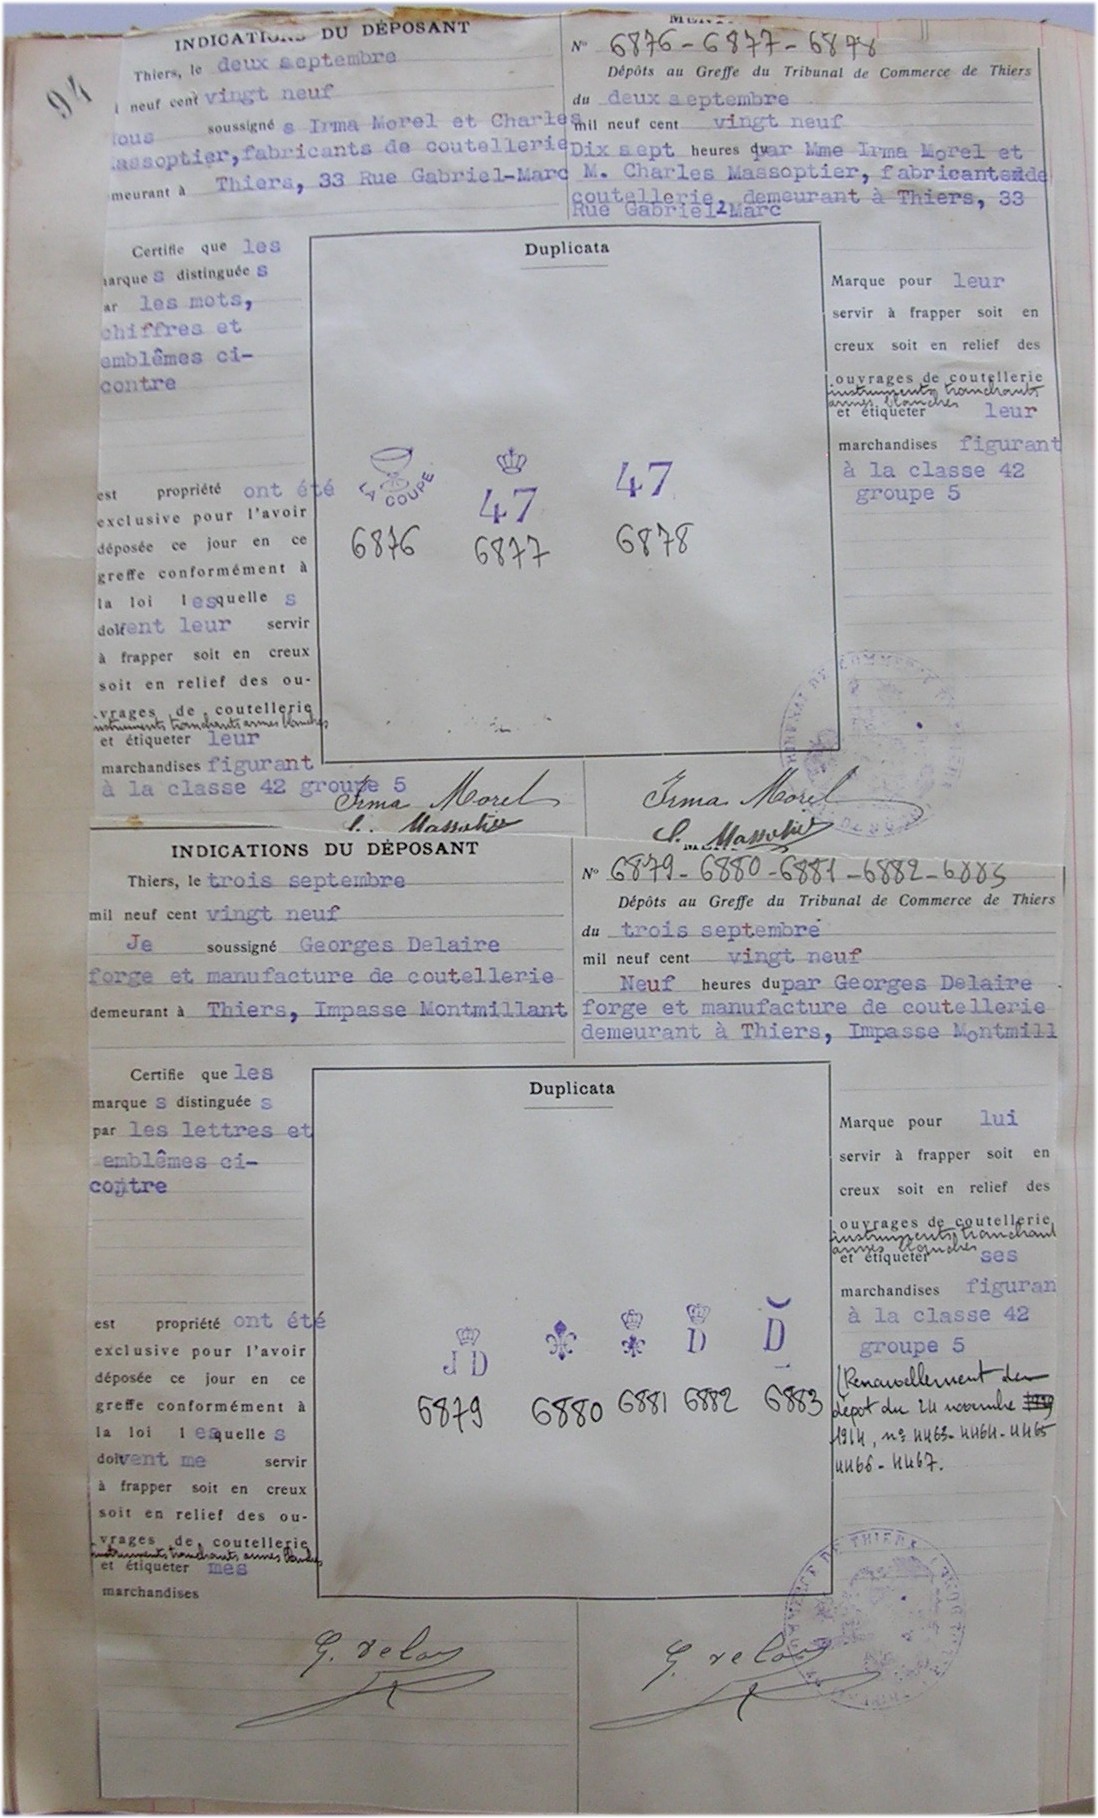 94
INDICATIONS DU DÉPOSANT
Thiers, le deux septembre
neuf cent vingt neuf
Nous soussigné s Irma Morel et Charles
Massoptier, fabricants de coutellerie
meurant à Thiers, 33 Rue Gabriel-Marc
N° 6876 - 6877 - 6878
Dépôts au Greffe du Tribunal de Commerce de Thiers
du deux septembre
mil neuf cent vingt neuf
Dix sept heures du par Mme Irma Morel et
M. Charles Massoptier, fabricants de
coutellerie, demeurant à Thiers, 33
Rue Gabriel-Marc
Certifie que les
marque s distinguée s
ar les mots,
chiffres et
emblêmes ci-
contre
est propriété ont été
exclusive pour l'avoir
déposée ce jour en ce
greffe conformément à
la loi lesquelle s
doivent leur servir
à frapper soit en creux
soit en relief des ou-
vrages de coutellerie
instruments tranchants armes blanches
et étiqueter leur
marchandises figurant
à la classe 42 groupe 5
Duplicata
LA COUPE
47
47
6876
6877
6878
Marque pour leur
servir à frapper soit en
creux soit en relief des
ouvrages de coutellerie
instruments tranchants
armes blanches
et étiqueter leur
marchandises figurant
à la classe 42
groupe 5
Irma Morel
Irma Morel
INDICATIONS DU DÉPOSANT
Thiers, le trois septembre
mil neuf cent vingt neuf
Je soussigné Georges Delaire
forge et manufacture de coutellerie
demeurant à Thiers, Impasse Montmillant
N° 6879 - 6880 - 6881 - 6882 - 6883
Dépôts au Greffe du Tribunal de Commerce de Thiers
du trois septembre
mil neuf cent vingt neuf
Neuf heures du par Georges Delaire
forge et manufacture de coutellerie
demeurant à Thiers, Impasse Montmill
Certifie que les
marque s distinguée s
par les lettres et
emblêmes ci-
contre
est propriété ont été
exclusive pour l'avoir
déposée ce jour en ce
greffe conformément à
la loi lesquelle s
doivent me servir
à frapper soit en creux
soit en relief des ou-
vrages de coutellerie
instruments tranchants armes blanches
et étiqueter mes
marchandises
Duplicata
J D
D
D
6879
6880
6881
6882
6883
Marque pour lui
servir à frapper soit en
creux soit en relief des
ouvrages de coutellerie
instruments tranchant
armes blanches
et étiqueter ses
marchandises figuran
à la classe 42
groupe 5
(Renouvellement du
dépôt du 24 novembre
1914, nos 4463 - 4464 - 4465
4466 - 4467.